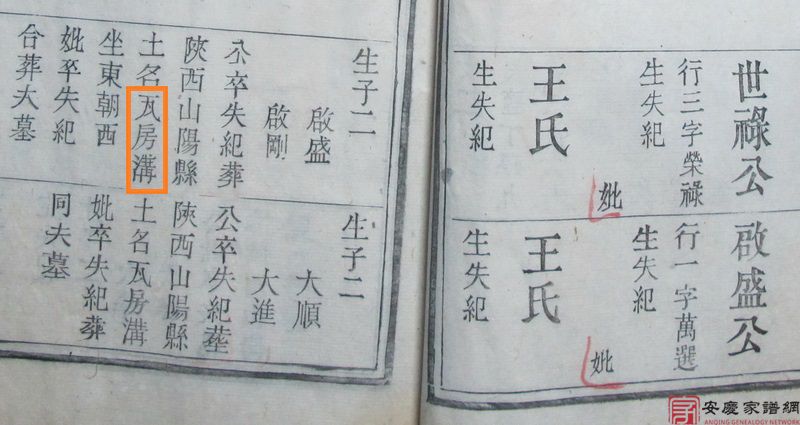 世祿公
行三字榮祿
生失紀
妣
王氏
生失紀
啟盛公
行一字萬選
生失紀
妣
王氏
生失紀
生子二
啟盛
啟剛
公卒失紀葬
陝西山陽縣
土名瓦房溝
坐東朝西
妣卒失紀
合葬大墓
生子二
大順
大進
公卒失紀塟
陝西山陽縣
土名瓦房溝
妣卒失紀葬
同夫墓
安慶家譜網
ANQING GENEALOGY NETWORK